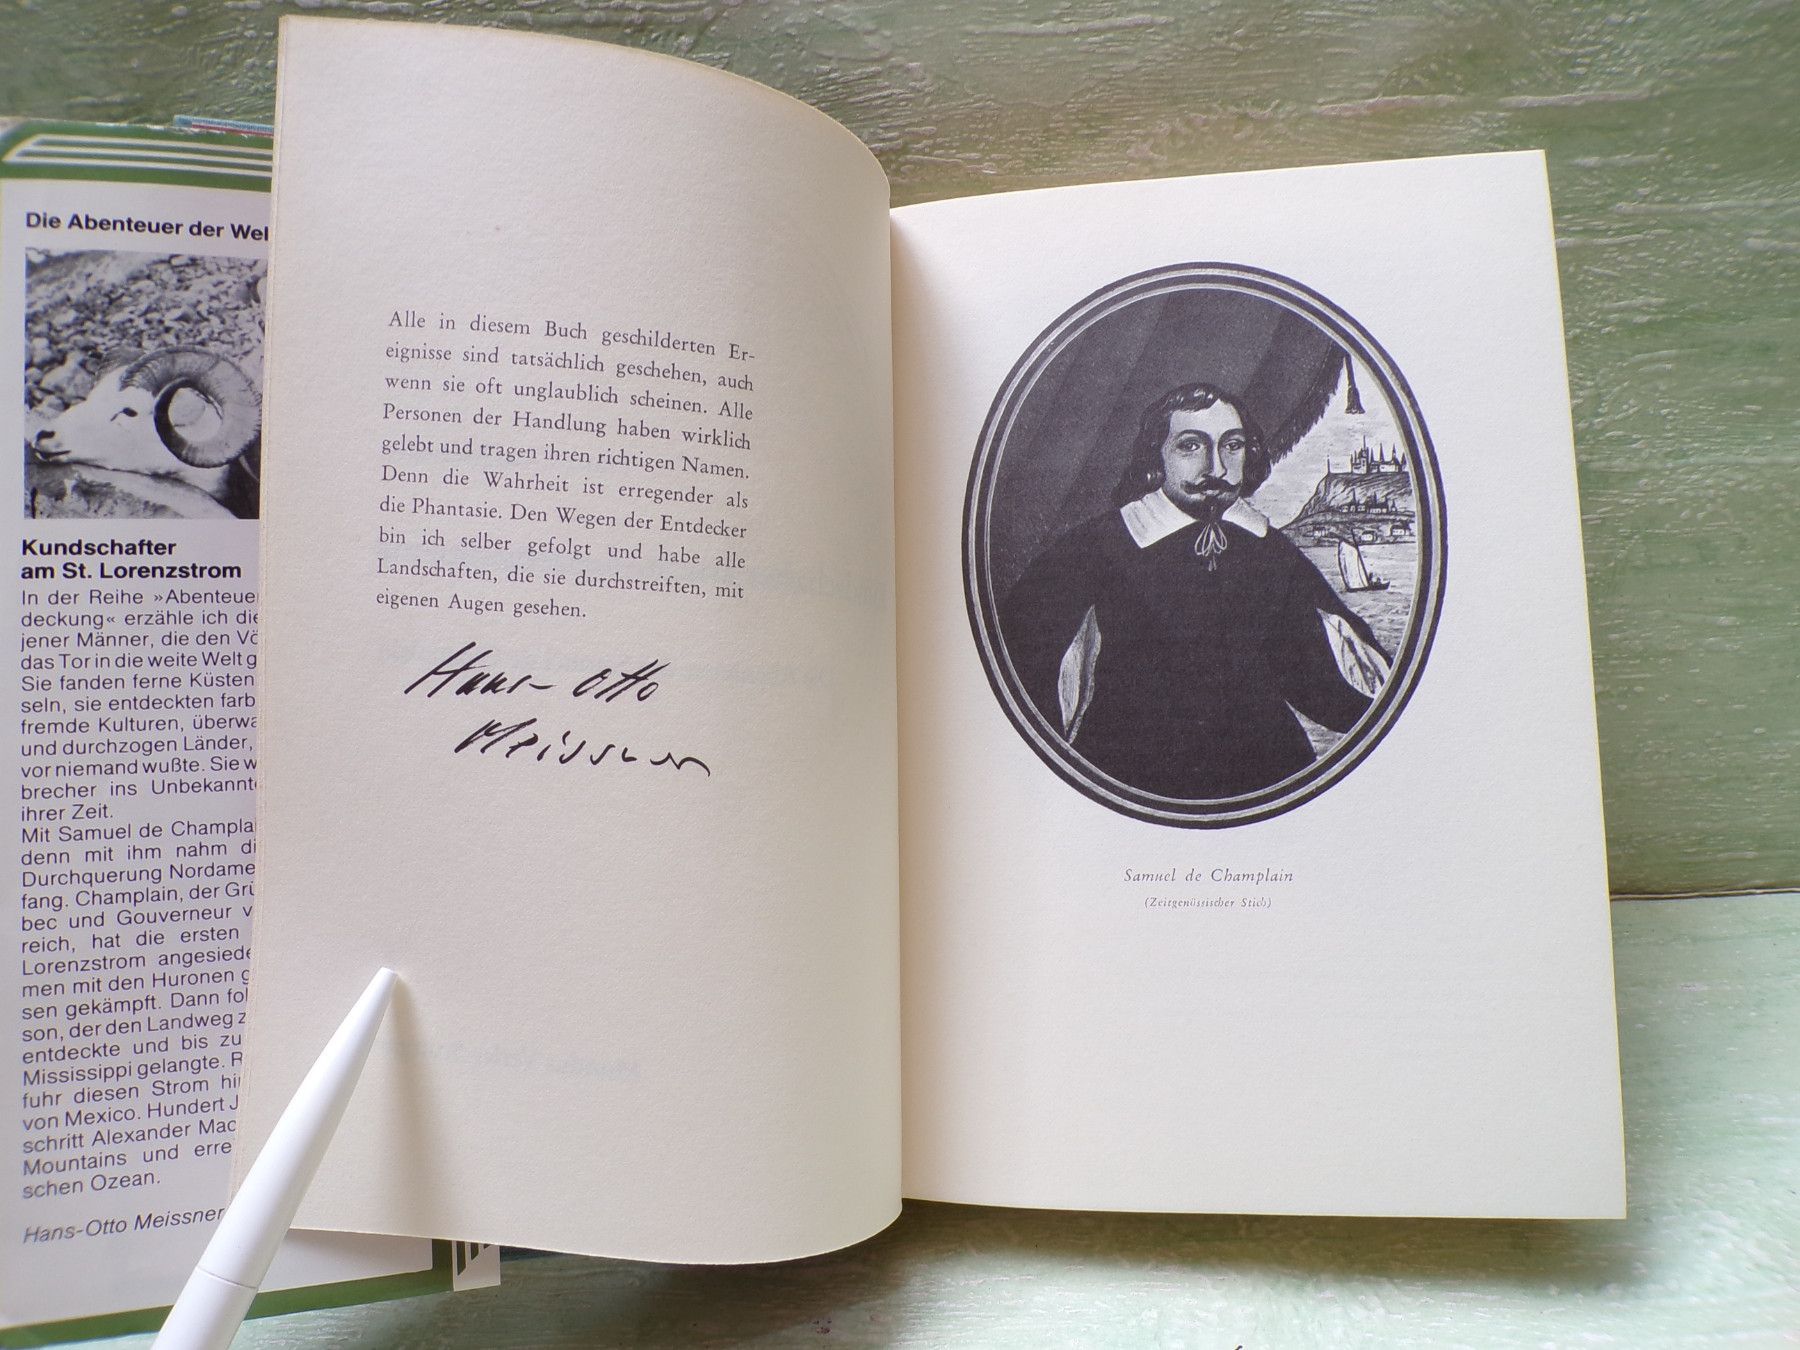 Die Abenteuer der Wel
Kundschafter
am St. Lorenzstrom
In der Reihe »Abenteue
deckung« erzähle ich die
jener Männer, die den Vö
das Tor in die weite Welt g
Sie fanden ferne Küsten
seln, sie entdeckten farb
fremde Kulturen, überwa
und durchzogen Länder,
vor niemand wußte. Sie w
brecher ins Unbekannte
ihrer Zeit.
Mit Samuel de Champla
denn mit ihm nahm di
Durchquerung Nordame
fang. Champlain, der Grü
bec und Gouverneur v
reich, hat die ersten
Lorenzstrom angesiede
men mit den Huronen g
sen gekämpft. Dann fol
son, der den Landweg z
entdeckte und bis zu
Mississippi gelangte. R
fuhr diesen Strom hi
von Mexico. Hundert J
schritt Alexander Mac
Mountains und erre
schen Ozean.
Hans-Otto Meissner
Alle in diesem Buch geschilderten Er-
eignisse sind tatsächlich geschehen, auch
wenn sie oft unglaublich scheinen. Alle
Personen der Handlung haben wirklich
gelebt und tragen ihren richtigen Namen.
Denn die Wahrheit ist erregender als
die Phantasie. Den Wegen der Entdecker
bin ich selber gefolgt und habe alle
Landschaften, die sie durchstreiften, mit
eigenen Augen gesehen.
Hans-Otto
Meissner
Samuel de Champlain
(Zeitgenössischer Stich)